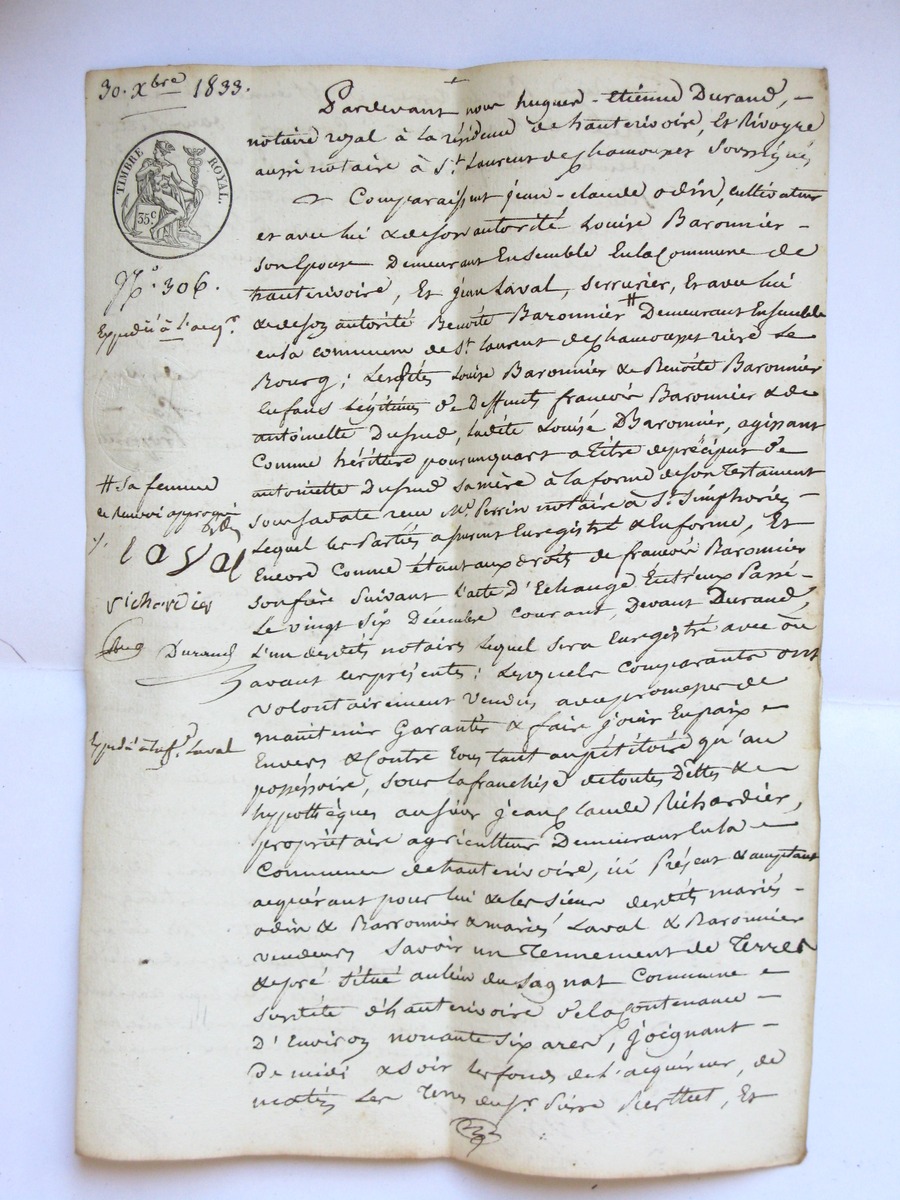 30. Xbre 1833.
TIMBRE ROYAL.
35c
No. 306.
Expédié à l'acqr.
# Sa femme
ce renvoi approuvé
Laval
richardier
Durand
Expédié à Laval
Pardevant nous hugues-Etienne Durand,
notaire royal à la résidence de hauterivoire, Et Rivoyre
aussi notaire à St. Laurent de Chamousset Soussignés
Comparaissent jean-claude odin, cultivateur
et avec lui & de son autorité Louise Baronnier
son Epouse Demeurant Ensemble En la Commune de
hauterivoire, Et jean Laval, serrurier, Et avec lui
& de son autorité Benoite Baronnier # Demeurant Ensemble
en la commune de St. Laurent de Chamousset Le
Bourg; Lesdites Louise Baronnier & Benoite Baronnier
Enfans Légitimes De Deffunts francois Baronnier & de
antoinette Dusud, ladite Louise Baronnier, agissant
Comme héritière pour un quart a titre de préciput de
antoinette Dusud sa mère à la forme de son Testament
sous sa date recu Me. Perrin notaire à St. Simphorien
Lequel les Parties assurent Enregistré & En forme, Et
Encore Comme étant aux droits de francois Baronnier
son frère Suivant l'acte D'Echange Entr'eux Passé
Le vingt six Décembre courant, Devant Durand,
L'un desdits notaires Lequel sera Enregistré avec ou
avant les présentes; Lesquels comparants ont
volontairement vendu avec promesses de
maintenir Garantir & faire jouir En paix
Envers & Contre tous tant au pétitoire qu'au
possessoire, sous la franchise de toutes Dettes &
hypothèques au sieur jean Claude Richardier,
propriétaire agriculteur Demeurant En la
Commune de hauterivoire, ici Présent & acceptant
acquérant pour lui & les siens desdits mariés
odin & Barronnier & mariés Laval & Baronnier
vendeurs savoir un Tennement de Terres
& pré situé au lieu du Sagnat Commune
susdite d'hauterivoire de la Contenance
D'Environ nonante six ares, joignant
De midi & soir les fonds de L'acquéreur, de
matin Les Terres du sr. Pierre Berthet, Et